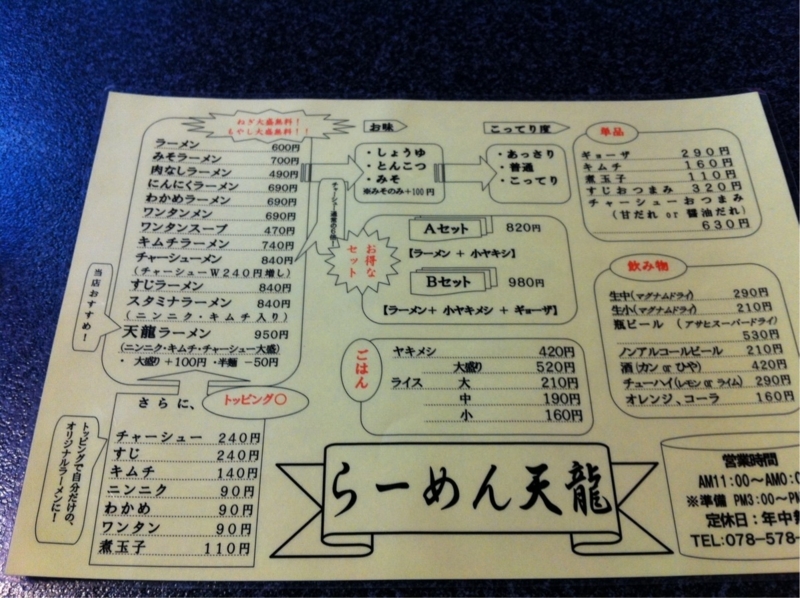 ねぎ大盛無料！
もやし大盛無料！！
ラーメン 600円
みそラーメン 700円
肉なしラーメン 490円
にんにくラーメン 690円
わかめラーメン 690円
ワンタンメン 690円
ワンタンスープ 470円
キムチラーメン 740円
チャーシューメン 840円
(チャーシューW240円増し)
すじラーメン 840円
スタミナラーメン 840円
(ニンニク・キムチ入り)
天龍ラーメン 950円
(ニンニク・キムチ・チャーシュー大盛)
・大盛り+100円・半麺-50円
当店おすすめ！
お味
・しょうゆ
・とんこつ
・みそ
※みそのみ+100円
こってり度
・あっさり
・普通
・こってり
お得な
セット
Aセット 820円
【ラーメン + 小ヤキシ】
Bセット 980円
【ラーメン + 小ヤキメシ + ギョーザ】
ごはん
ヤキメシ 420円
大盛り 520円
ライス 大 210円
中 190円
小 160円
単品
ギョーザ 290円
キムチ 160円
煮玉子 110円
すじおつまみ 320円
チャーシューおつまみ
(甘だれ or 醤油だれ)
630円
飲み物
生中(マグナムドライ) 290円
生小(マグナムドライ) 210円
瓶ビール (アサヒスーパードライ)
530円
ノンアルコールビール 210円
酒(カン or ひや) 420円
チューハイ(レモン or ライム) 290円
オレンジ、コーラ 160円
さらに、
トッピング〇
チャーシュー 240円
すじ 240円
キムチ 140円
ニンニク 90円
わかめ 90円
ワンタン 90円
煮玉子 110円
トッピングで自分だけの、
オリジナルラーメンに！
らーめん天龍
営業時間
AM11:00～AM0:0
※準備 PM3:00～PM
定休日：年中
TEL:078-578-